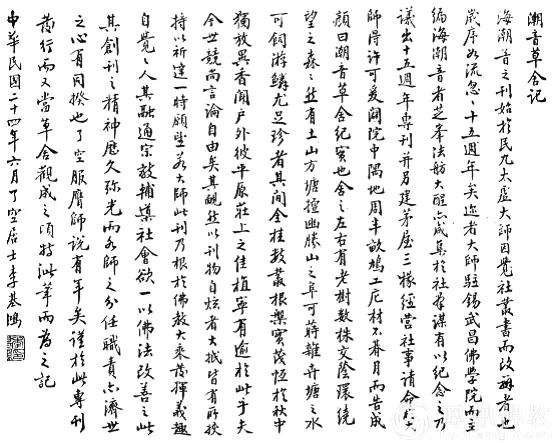 潮音草舍记
海潮音之刊始於民九太虛大师因觉社丛书而改办者也
岁序如流忽忽十五週年矣迩者大师驻锡武昌佛学院而主
编海潮音者芝峯法舫大醒亦咸集於社群谋有以纪念之乃
议出十五週年专刊并另建茅屋三椽经营社事请命大
师得许可爰闢院中隅地周半畝鳩工庀材不朞月而告成
颜曰潮音草舍纪实也舍之左右有老树数株交荫环绕
望之森森然有土山方塘擅幽胜山之阜可蒔雜卉塘之水
可飼游鳞尤足珍者其间金桂数丛根槃实茂恆於秋中
独放異香闻户外彼平原庄上之佳植寧有逾於此乎夫
今世競尚言论自由矣其靦然以刊物自炫者大抵皆有所挾
持以祈達一特顾坠若大师此刊乃根於佛教大乘发挥义趣
自觉觉人其融通宗教補導社會欲一以佛法改善之此
其創刊之精神應久弥光而各师之分任职责亦濟世
之心有同揆也了空服膺师说有年矣谨於此专刊
发行而又当草舍观成之顷特泚笔而为之记
中华民国二十四年六月了空居士李基鸿